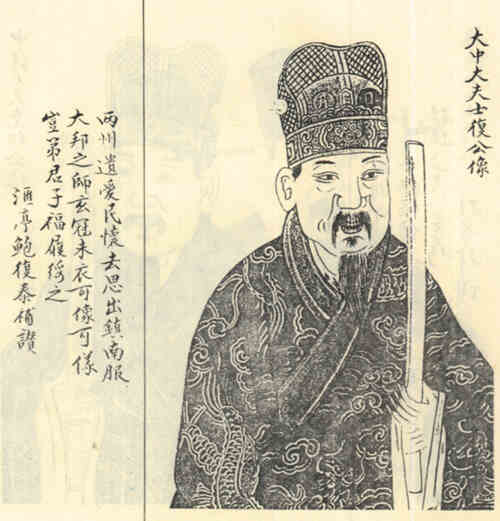 大中大夫士復公像
兩州遺愛民懷去思出鎮南服
大邦之師玄冠朱衣可像可儀
豈弟君子福履綏之
亭鮑復泰補讚